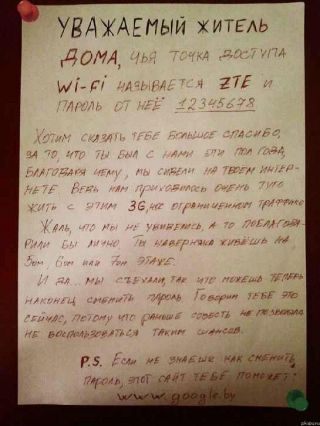 УВАЖАЕМЫЙ ЖИТЕЛЬ
ДОМА, ЧЬЯ ТОЧКА ДОСТУПА
Wi-Fi НАЗЫВАЕТСЯ ZTE И
ПАРОЛЬ ОТ НЕЁ 12345678
ХОТИМ СКАЗАТЬ ТЕБЕ БОЛЬШОЕ СПАСИБО,
ЗА ТО, ЧТО ТЫ БЫЛ С НАМИ ЭТИ ПОЛ ГОДА,
БЛАГОДАРЯ ЧЕМУ, МЫ СИДЕЛИ НА ТВОЕМ ИНТЕР-
НЕТЕ. ВЕДЬ НАМ ПРИХОДИЛОСЬ ОЧЕНЬ ТУГО
ЖИТЬ С ЭТИМ 3G, ИХ ОГРАНИЧЕННОМ ТРАФФИКОМ
ЖАЛЬ, ЧТО МЫ НЕ УВИДИМСЯ, А ТО ПОБЛАГОДА-
РИЛИ БЫ ЛИЧНО. ТЫ НАВЕРНЯКА ЖИВЁШЬ НА
5ом, 6ом ИЛИ 7ом ЭТАЖЕ.
И ДА... МЫ СЪЕХАЛИ, ТАК ЧТО МОЖЕШЬ ТЕПЕРЬ
НАКОНЕЦ СМЕНИТЬ ПАРОЛЬ. ГОВОРИМ ТЕБЕ ЭТО
СЕЙЧАС, ПОТОМУ ЧТО РАНЬШЕ СОВЕСТЬ НЕ ПОЗВОЛЯЛА
НЕ ВОСПОЛЬЗОВАТЬСЯ ТАКИМ ШАНСОМ.
P.S. ЕСЛИ НЕ ЗНАЕШЬ КАК СМЕНИТЬ
ПАРОЛЬ, ЭТОТ САЙТ ТЕБЕ ПОМОЖЕТ:
www.google.by